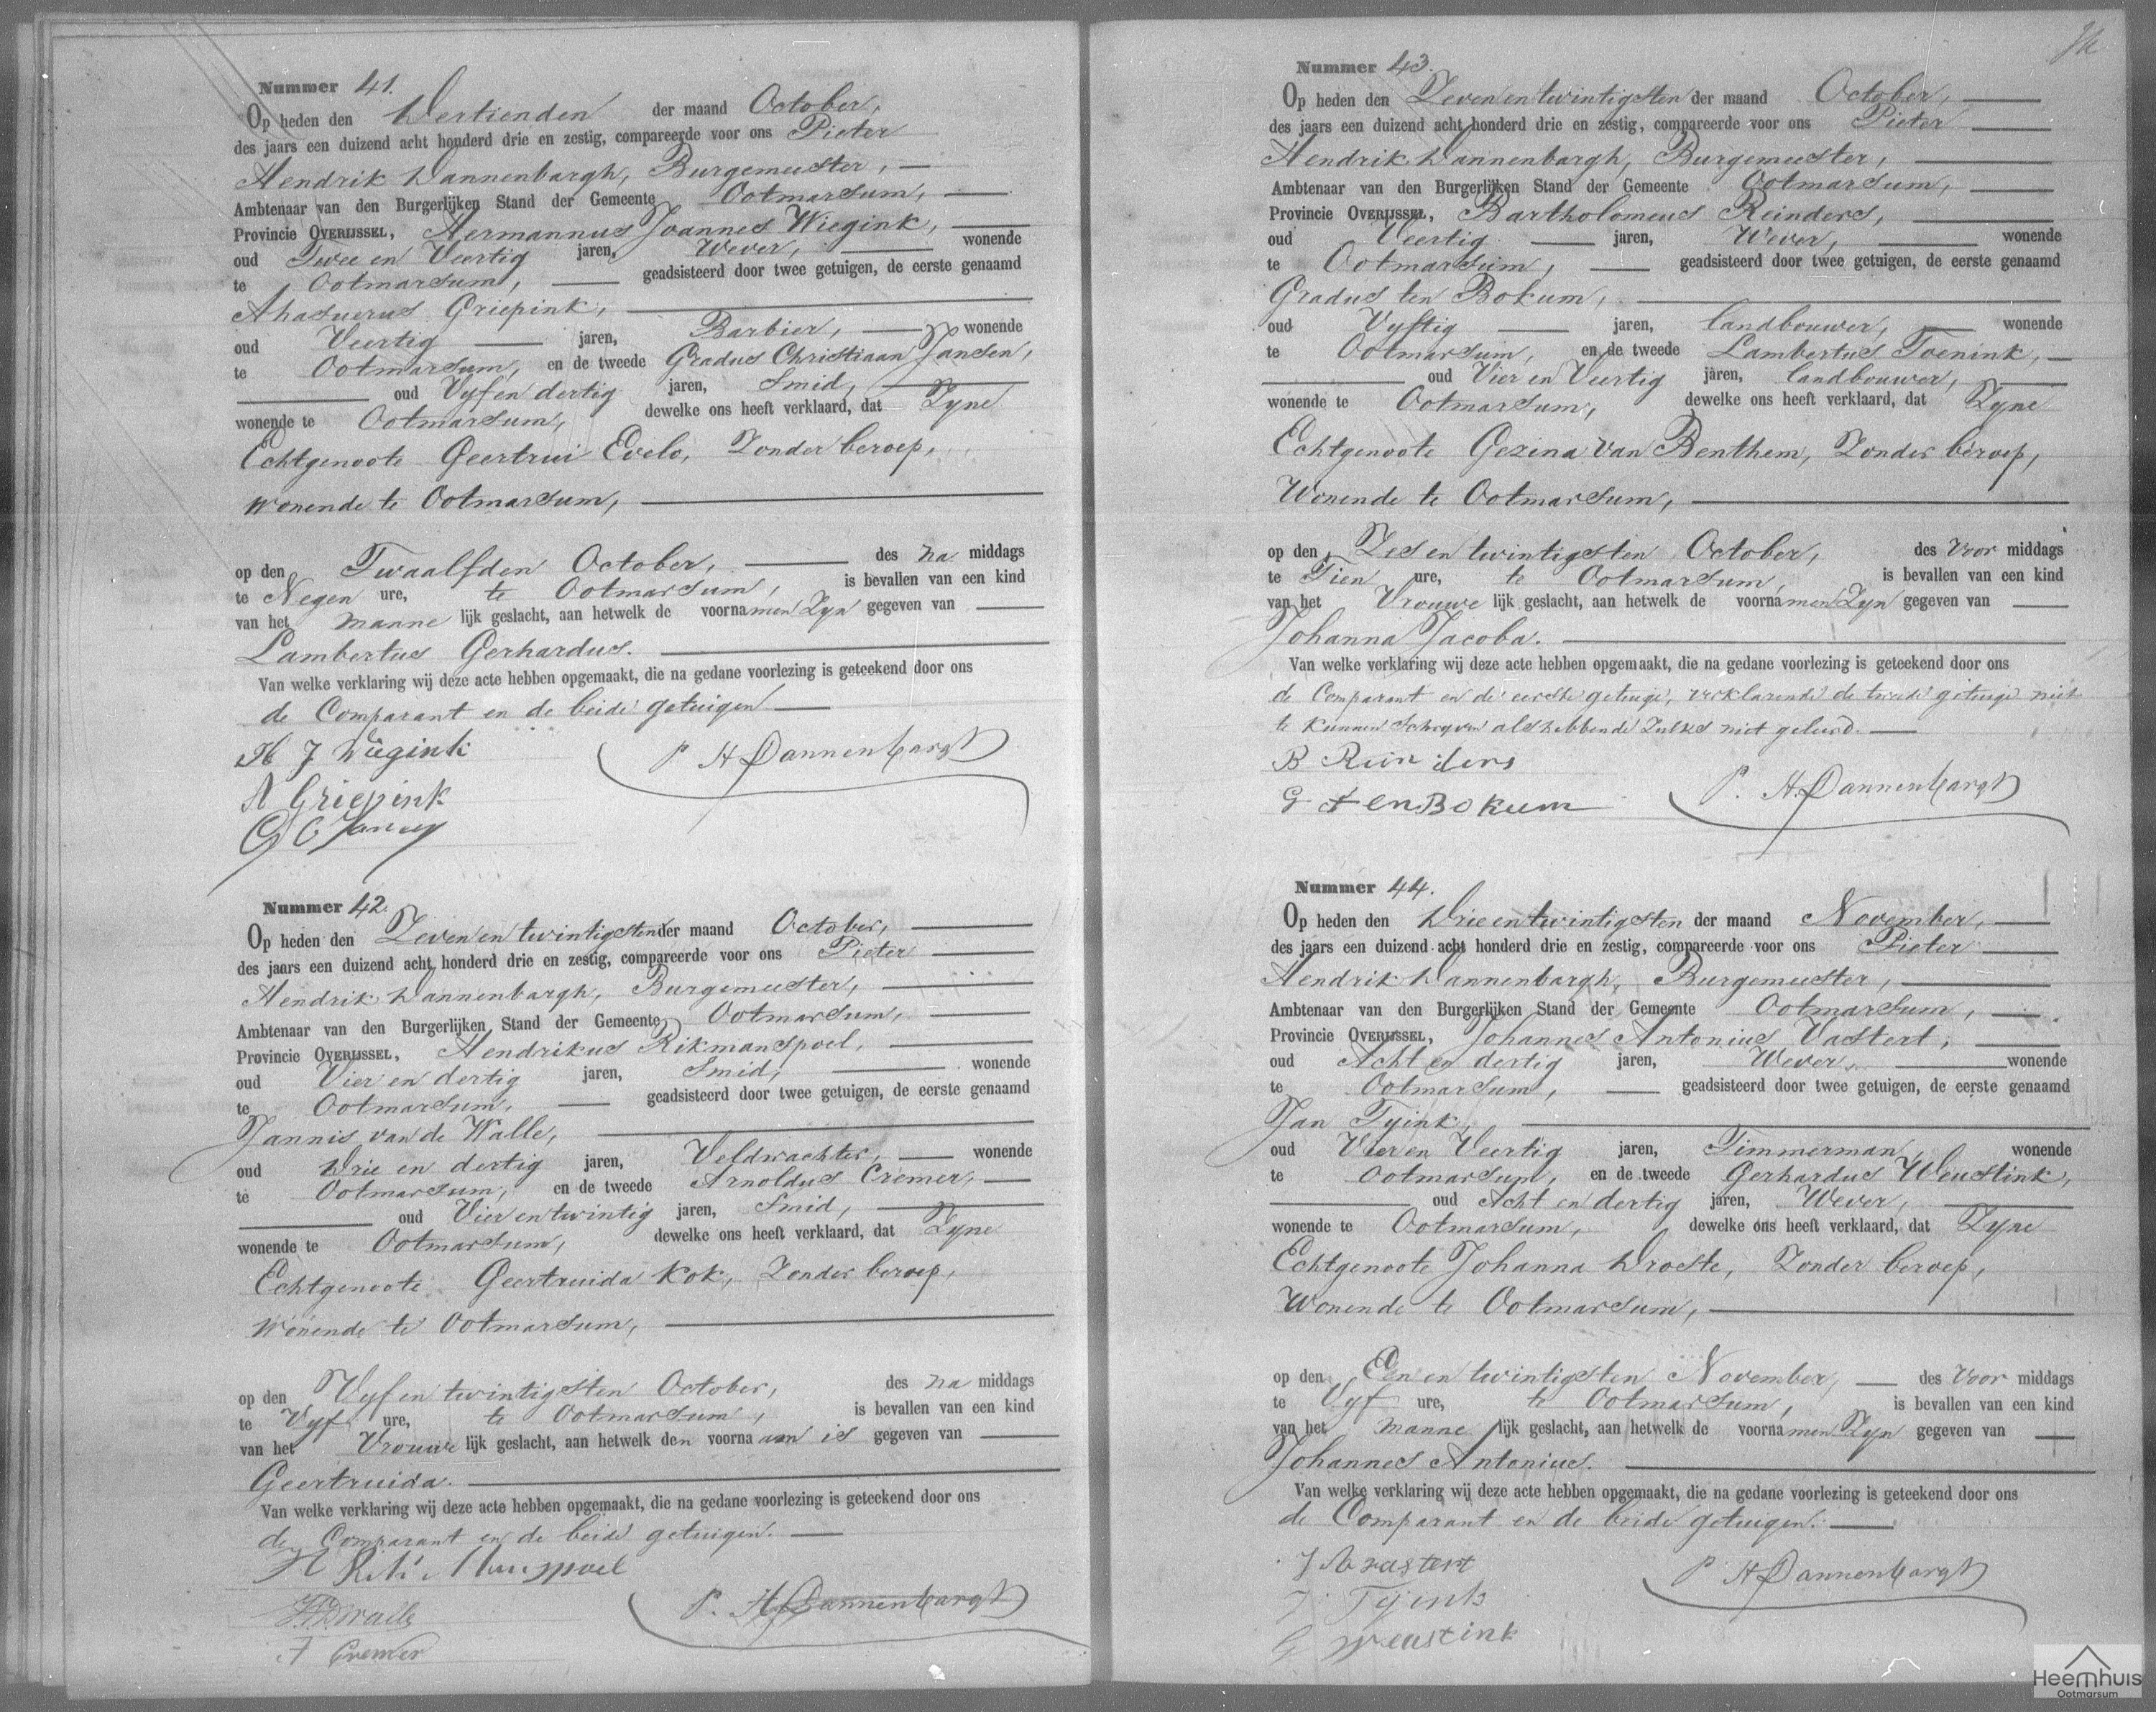 Nummer 41.
Op heden den Dertienden der maand October,
des jaars een duizend acht honderd drie en zestig, compareerde voor ons Pieter
Hendrik Dannenbargh, Burgemeester,
Ambtenaar van den Burgerlijken Stand der Gemeente Ootmarsum,
Provincie OVERIJSSEL, Hermannus Joannes Wiegink,
oud Twee en Veertig jaren, Wever, wonende
te Ootmarsum, geadsisteerd door twee getuigen, de eerste genaamd
Ahasuerus Griepink,
oud Veertig jaren, Barbier, wonende
te Ootmarsum, en de tweede Gradus Christiaan Jansen,
oud Vyf en dertig jaren, Smid,
wonende te Ootmarsum, dewelke ons heeft verklaard, dat Zyne
Echtgenoote Geertrui Evelo, Zonder beroep,
Wonende te Ootmarsum,
op den Twaalfden October, des na middags
te Negen ure, te Ootmarsum, is bevallen van een kind
van het manne lijk geslacht, aan hetwelk de voornamen Zyn gegeven van
Lambertus Gerhardus.
Van welke verklaring wij deze acte hebben opgemaakt, die na gedane voorlezing is geteekend door ons
de Comparant en de beide getuigen
H J Wiegink
P H Dannenbargh
A Griepink
G C Jansen
Nummer 42.
Op heden den Zeven en twintigsten der maand October,
des jaars een duizend acht honderd drie en zestig, compareerde voor ons Pieter
Hendrik Dannenbargh, Burgemeester,
Ambtenaar van den Burgerlijken Stand der Gemeente Ootmarsum,
Provincie OVERIJSSEL, Hendrikus Rikmanspoel,
oud Vier en dertig jaren, Smid, wonende
te Ootmarsum, geadsisteerd door twee getuigen, de eerste genaamd
Jannis van de Walle,
oud Drie en dertig jaren, Veldwachter, wonende
te Ootmarsum, en de tweede Arnoldus Cremer,
oud Vier en twintig jaren, Smid,
wonende te Ootmarsum, dewelke ons heeft verklaard, dat Zyne
Echtgenoote Geertruida Kok, Zonder beroep,
Wonende te Ootmarsum,
op den Vyf en twintigsten October, des na middags
te Vyf ure, te Ootmarsum, is bevallen van een kind
van het Vrouwe lijk geslacht, aan hetwelk den voorna am is gegeven van
Geertruida.
Van welke verklaring wij deze acte hebben opgemaakt, die na gedane voorlezing is geteekend door ons
de Comparant en de beide getuigen.
H Rikmanspoel
P. H Dannenbargh
Cremer
Nummer 43.
Op heden den Zeven en twintigsten der maand October,
des jaars een duizend acht honderd drie en zestig, compareerde voor ons Pieter
Hendrik Dannenbargh, Burgemeester,
Ambtenaar van den Burgerlijken Stand der Gemeente Ootmarsum,
Provincie OVERIJSSEL, Bartholomeus Reinders,
oud Veertig jaren, Wever, wonende
te Ootmarsum, geadsisteerd door twee getuigen, de eerste genaamd
Gradus ten Bokum,
oud Vyftig jaren, landbouwer, wonende
te Ootmarsum, en de tweede Lambertus Toenink,
oud Vier en Veertig jaren, landbouwer,
wonende te Ootmarsum, dewelke ons heeft verklaard, dat Zyne
Echtgenoote Gezina van Benthem, Zonder beroep,
Wonende te Ootmarsum,
op den Zes en twintigsten October, des Voor middags
te Tien ure, te Ootmarsum, is bevallen van een kind
van het Vrouwe lijk geslacht, aan hetwelk de voornamen Zyn gegeven van
Johanna Jacoba.
Van welke verklaring wij deze acte hebben opgemaakt, die na gedane voorlezing is geteekend door ons
de Comparant en de eerste getuige, verklarende de tweede getuige niet
te kunnen Schryven als hebbende Zulks niet geleerd.
B Reinders
P. H. Dannenbargh
G ten Bokum
Nummer 44.
Op heden den Drie en twintigsten der maand November,
des jaars een duizend acht honderd drie en zestig, compareerde voor ons Pieter
Hendrik Dannenbargh, Burgemeester,
Ambtenaar van den Burgerlijken Stand der Gemeente Ootmarsum,
Provincie OVERIJSSEL, Johannes Antonius Vastert,
oud Acht en dertig jaren, Wever, wonende
te Ootmarsum, geadsisteerd door twee getuigen, de eerste genaamd
Jan Tyink,
oud Vier en Veertig jaren, Timmerman, wonende
te Ootmarsum, en de tweede Gerhardus Weustink,
oud Acht en dertig jaren, Wever,
wonende te Ootmarsum, dewelke ons heeft verklaard, dat Zyne
Echtgenoote Johanna Droste, Zonder beroep,
Wonende te Ootmarsum,
op den Een en twintigsten November, des Voor middags
te Vyf ure, te Ootmarsum, is bevallen van een kind
van het manne lijk geslacht, aan hetwelk de voornamen Zyn gegeven van
Johannes Antonius.
Van welke verklaring wij deze acte hebben opgemaakt, die na gedane voorlezing is geteekend door ons
de Comparant en de beide getuigen.
J A Vastert
P H Dannenbargh
J. Tyink
G Weustink
Heemhuis
Ootmarsum